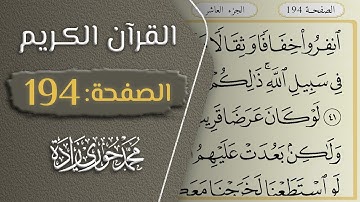 القرآن الكريم
الصفحة: 194
محمد حوري زادة
الصفحـة 194
الجزء العاشر
ٱنفِرُوا۟ خِفَافًا وَثِقَالًا
فِى سَبِيلِ ٱللَّهِ ۚ ذَٰلِكُمْ
٤١ لَوْ كَانَ عَرَضًا قَرِيبًا
وَلَٰكِنۢ بَعُدَتْ عَلَيْهِمُ
لَوِ ٱسْتَطَعْنَا لَخَرَجْنَا مَعَ